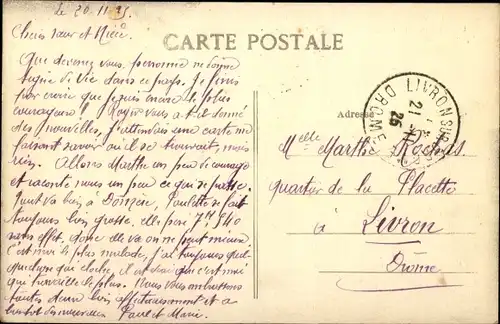 Le 20-11-25
Chers sœur et Nièce
CARTE POSTALE
Que devenez vous, personne ne donne
signe de vie dans ce pays. Je finis
par croire que je suis encore le plus
courageux! Roger vous a t-il donné
des nouvelles, j'attendais une carte me
faisant savoir où il se trouvait, mais
rien. Allons Marthe un peu de courage
et raconte nous un peu ce qui se passe.
Tout va bien à Paulette se fait
toujours bien grasse. elle pèse 7K 940
sans effet, donc elle va on ne peut mieux.
C'est moi le plus malade, j'ai toujours quel-
quechose qui cloche, il est vrai que c'est moi
qui travaille le plus. Nous vous embrassons
toutes deux bien affectueusement et à
bientôt des nouvelles Paul et Marie.
Adresse
LIVRON
DROME
21 - XI
25
Melle Marthe
quartier de la Placette
à Livron
Drôme